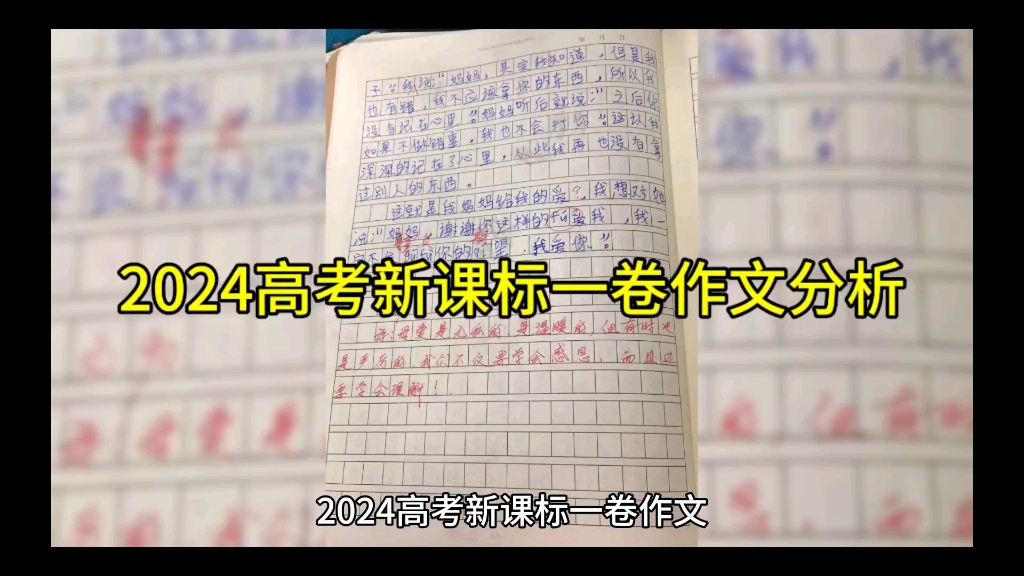 年 月 日
子。"我说:"妈妈,其实我知道,但是我
也有错,我不应该拿你的东西,所以我
没有记在心里。"妈妈听后就说:"之后你
如果不做错事,我也不会打你。"这让我
深深的记在了心里,从此我再也没有拿
过别人的东西。
这就是我妈妈给我的爱?,我想对她
说:"妈妈,谢谢你这样的fù爱我,我一
你的 望,我爱你。"
2024高考新课标一卷作文分析
母爱是无私的 是温暖的 但有时也
是严厉的 我们不仅要学会感恩,而且还
要学会理解!
2024高考新课标一卷作文